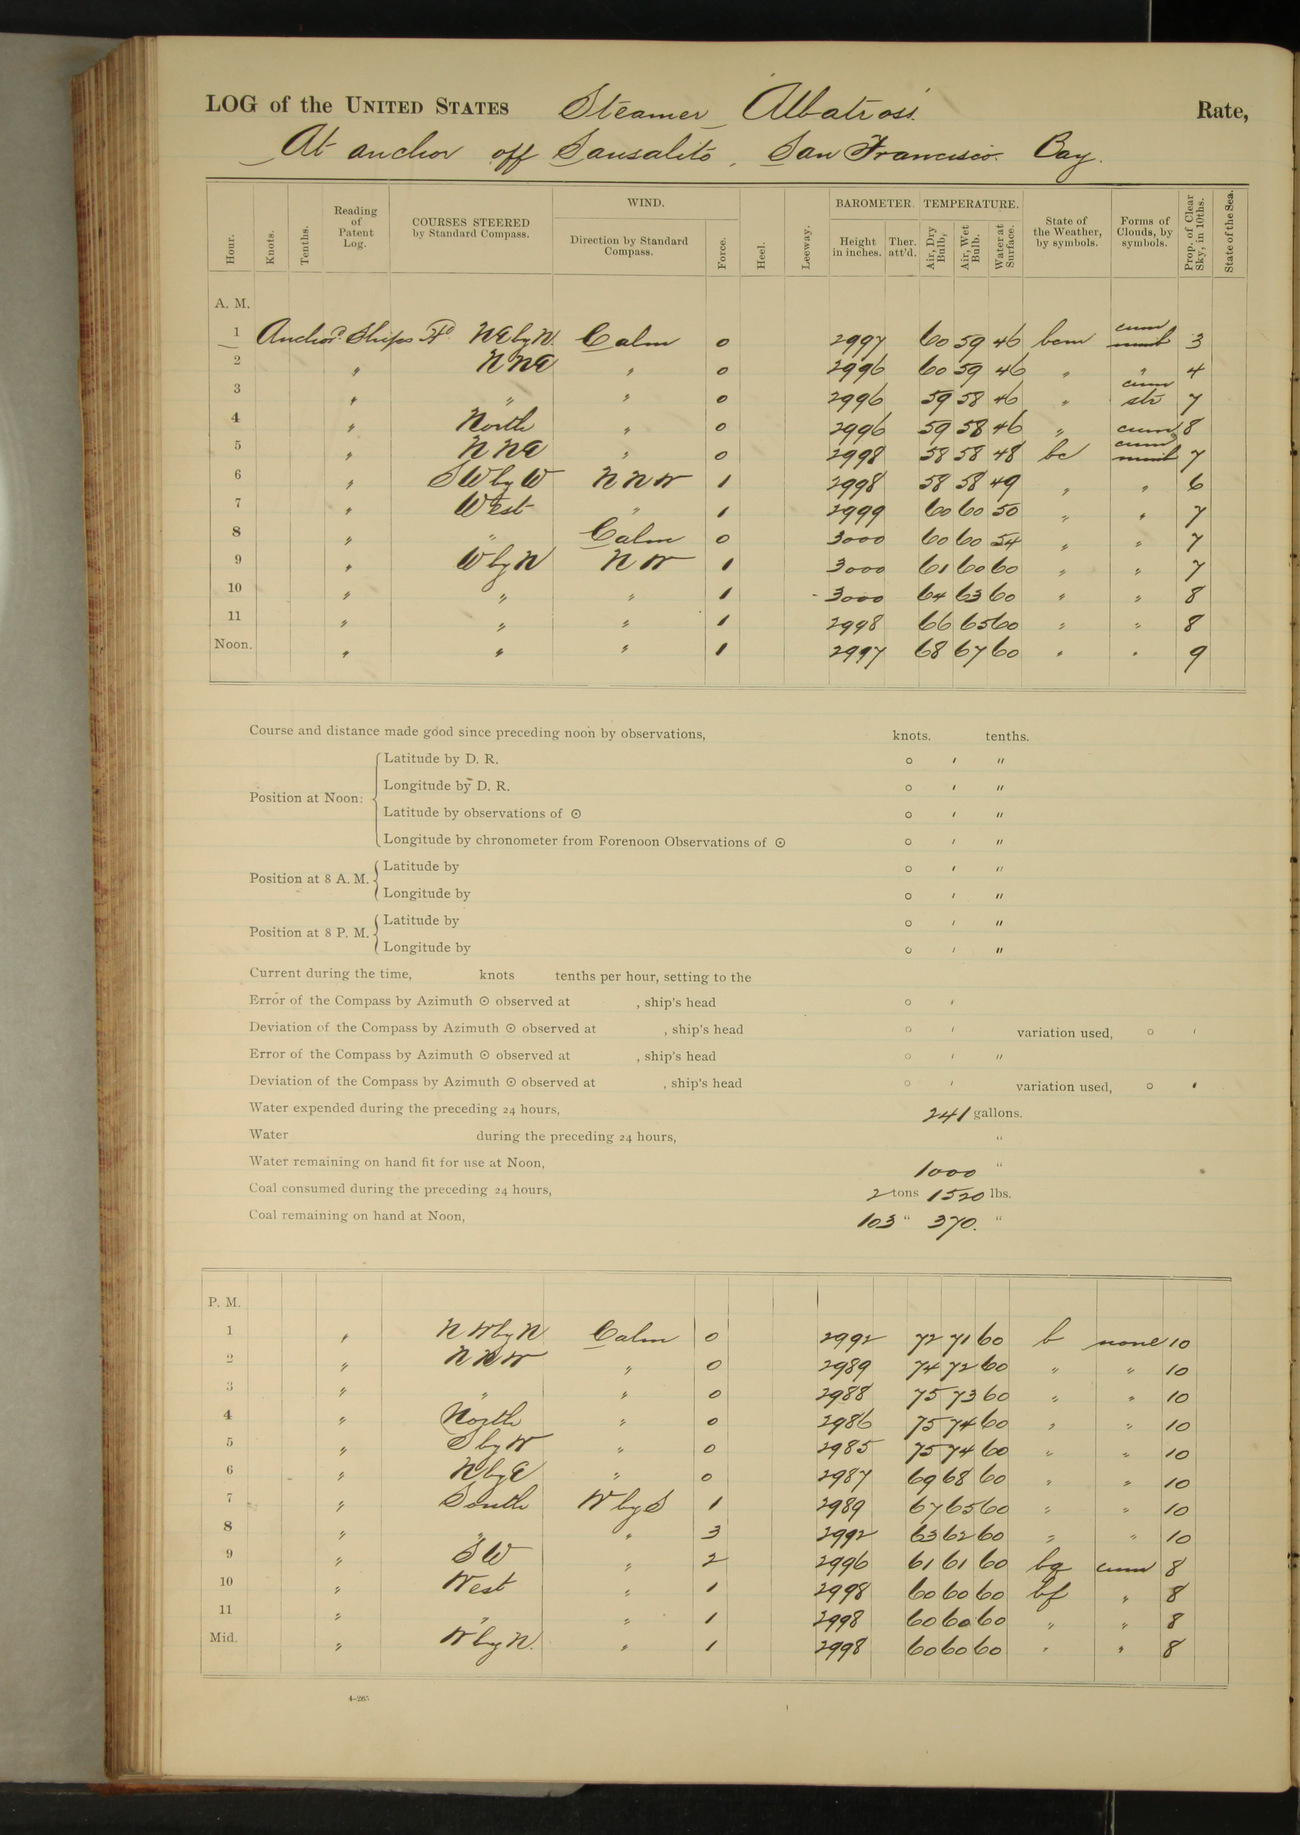 LOG of the UNITED STATES Steamer Albatross Rate,
At anchor off Sausalito, San Francisco Bay.
Hour. Knots. Tenths. Reading of Patent Log. COURSES STEERED by Standard Compass. WIND. Direction by Standard Compass. Force. Heel. Leeway. BAROMETER. Height in inches. Ther. att'd. TEMPERATURE. Air, Dry Bulb. Air, Wet Bulb. Water at Surface. State of the Weather, by symbols. Forms of Clouds, by symbols. Prop. of Clear Sky, in 10ths. State of the Sea.
A. M.
1 Anchor'd Ships Hd NE by N. Calm 0 2997 60 59 46 bcm cum 3
2 " NNE " 0 2996 60 59 46 " " 4
3 " " " 0 2996 59 58 46 " cum str 7
4 " North " 0 2996 59 58 46 " cum 8
5 " NNE " 0 2998 58 58 48 bc cum 7
6 " SW by W NNW 1 2998 58 58 49 " " 6
7 " West " 1 2999 60 60 50 " " 7
8 " " Calm 0 3000 60 60 54 " " 7
9 " W by N NW 1 3000 61 60 60 " " 7
10 " " " 1 3000 64 63 60 " " 8
11 " " " 1 2998 66 65 60 " " 8
Noon. " " " 1 2997 68 67 60 " " 9
Course and distance made good since preceding noon by observations, knots. tenths.
Position at Noon: Latitude by D. R. ° ' "
Longitude by D. R. ° ' "
Latitude by observations of ⊙ ° ' "
Longitude by chronometer from Forenoon Observations of ⊙ ° ' "
Position at 8 A. M. Latitude by ° ' "
Longitude by ° ' "
Position at 8 P. M. Latitude by ° ' "
Longitude by ° ' "
Current during the time, knots tenths per hour, setting to the
Error of the Compass by Azimuth ⊙ observed at , ship's head ° '
Deviation of the Compass by Azimuth ⊙ observed at , ship's head ° ' variation used, ° '
Error of the Compass by Azimuth ⊙ observed at , ship's head ° ' "
Deviation of the Compass by Azimuth ⊙ observed at , ship's head ° ' variation used, ° '
Water expended during the preceding 24 hours, 241 gallons.
Water during the preceding 24 hours, "
Water remaining on hand fit for use at Noon, 1000 "
Coal consumed during the preceding 24 hours, 2 tons 1520 lbs.
Coal remaining on hand at Noon, 103 " 370. "
P. M.
1 " NW by N Calm 0 2992 72 71 60 b none 10
2 " NNW " 0 2989 74 72 60 " " 10
3 " " " 0 2988 75 73 60 " " 10
4 " North " 0 2986 75 74 60 " " 10
5 " S by W " 0 2985 75 74 60 " " 10
6 " N by E " 0 2987 69 68 60 " " 10
7 " South W by S 1 2989 67 65 60 " " 10
8 " " " 3 2992 63 62 60 " " 10
9 " SW " 2 2996 61 61 60 bq cum 8
10 " West " 1 2998 60 60 60 bf " 8
11 " " " 1 2998 60 60 60 " " 8
Mid. " W by N. " 1 2998 60 60 60 " " 8
4-265